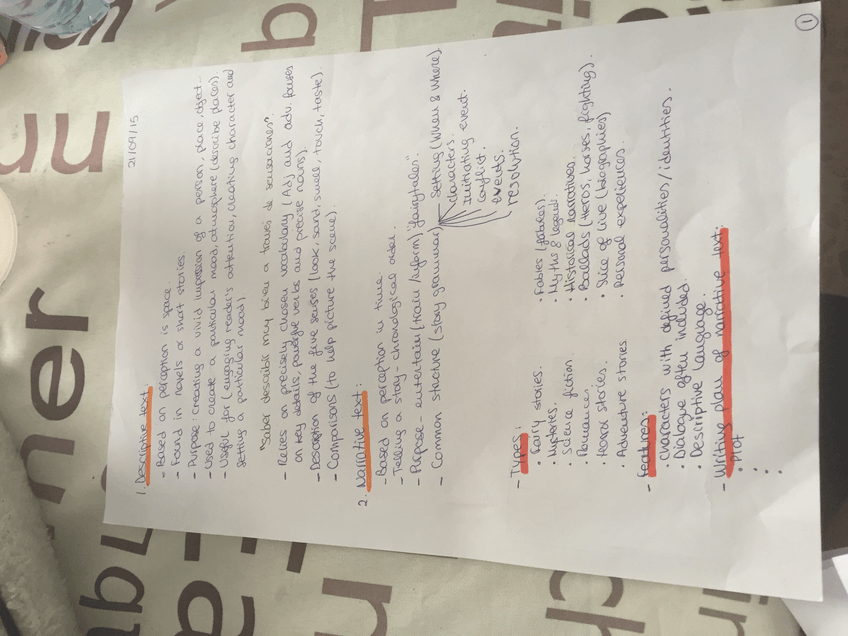 ①
21/09/15
1. Descriptive text
- Based on perception is space.
- Found in novels or short stories.
- Purpose: creating a vivid impression of a person, place, object...
- Used to create a particular mood, atmosphere (describe places)
- Useful for (engaging reader's attention, creating character and
setting a particular mood)
"Saber describir muy bien a través de sensaciones".
- Relies on precisely chosen vocabulary (Adj and adv. focuses
on key details, powerful verbs and precise nouns).
- Description of the five senses (look, sand, smell, touch, taste).
- Comparisons (to help picture the scene).
2. Narrative text:
- Based on perception in time.
- Telling a story - chronological order.
- Purpose - entertain (train/inform) "fairytales"
- Common structure (story grammar)
Setting (When & Where).
characters.
Initiating event.
Conflict.
events.
resolution.
- Types:
· Fairy stories.
· Mysteries.
· Science fiction
· Romances.
· Horror stories.
· Adventure stories
· Fables (fabulas).
· Myths & legend.
· Historical narratives.
· Ballads (heros, horses, fighting).
· Slice of live (biographies)
· Personal experiences.
- features:
· Characters with defined personalities/identities.
· Dialogue often included.
· Descriptive language.
- Writing plan of narrative text:
· Plot